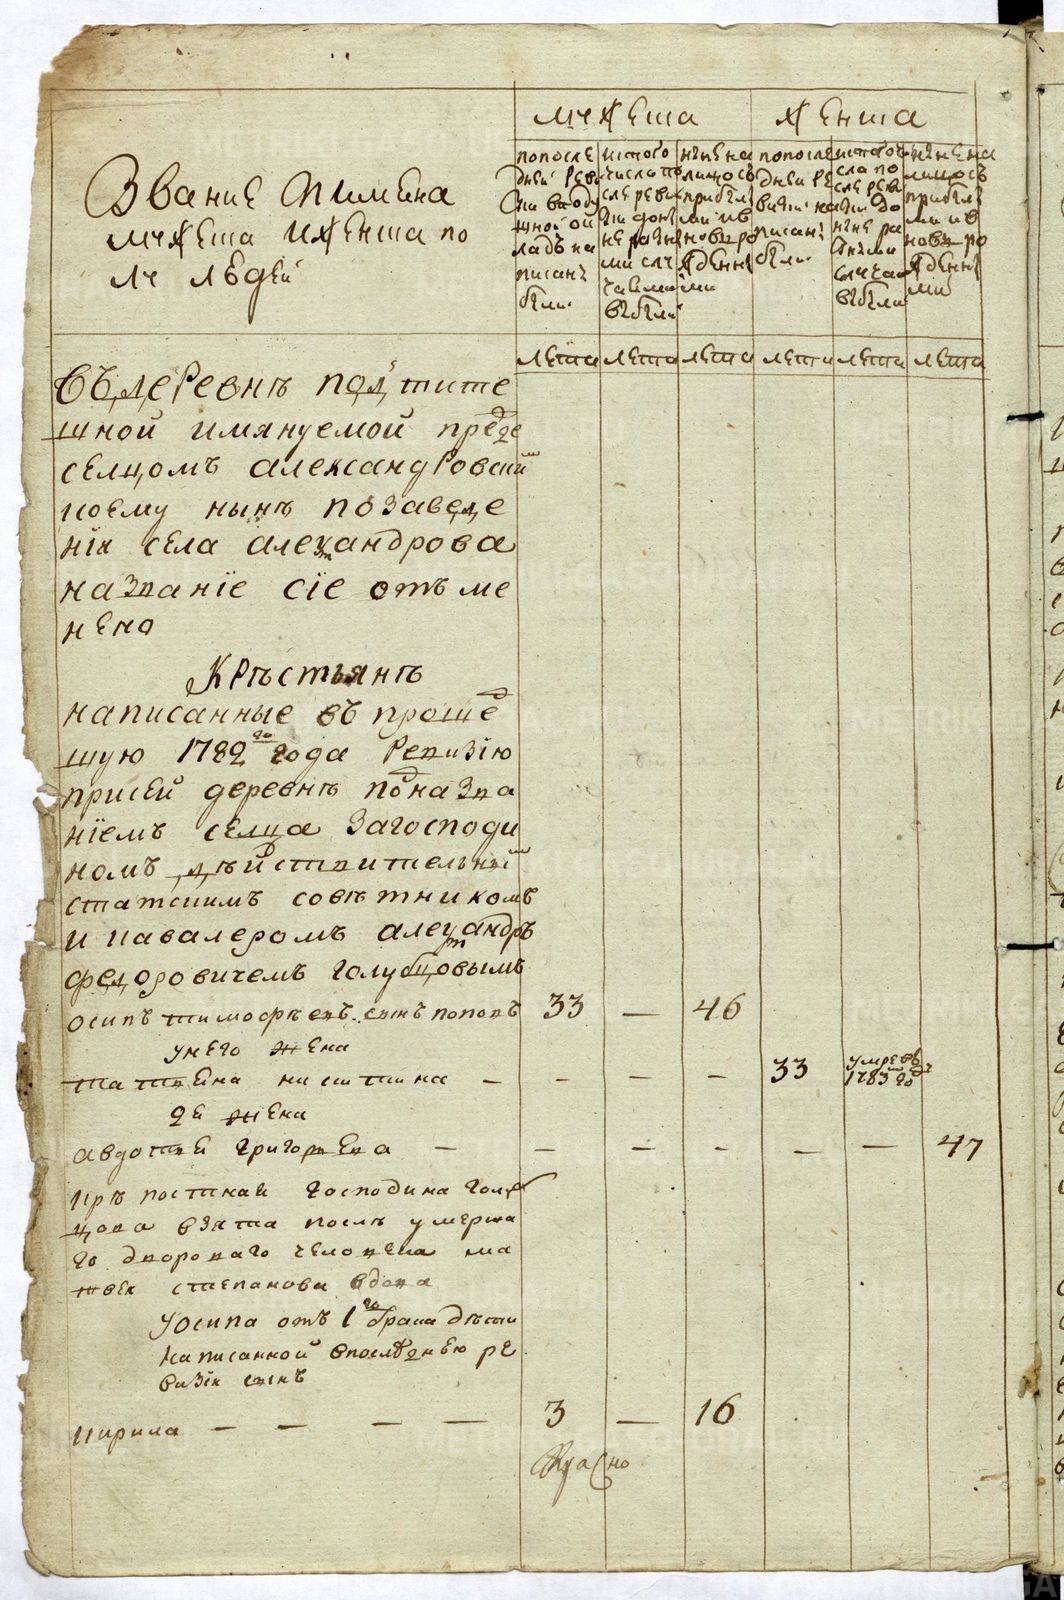 Звание и имена
мужеска и женска по
лу людей
мужеска
женска
по после
дней реви
зии в поду
шной ок
ладъ на
писаны
были
из того
числа по
сле реви
зии доны
не разны
ми слу
чаями
выбыли
ныне на
лицо съ
прибыл
ми и в
новь ро
жденны
ми
по после
дней ре
визии на
писаны
были
из того чи
сла по
сле реви
зии до
ныне ра
зными
случаи
выбыли
ныне на
лицо съ
прибылы
ми и в
новь ро
жденны
ми
лета лета лета лета лета лета
въ деревнѣ
имянуемой преде
селцомъ александровски
коему нынѣ по заведе
нїи села александрова
названїе сїе отъме
нено
Крѣстьянъ
написанные въ прошед
шую 1782го года ревизїю
при сей деревнѣ под назва
нїемъ селца за господи
номъ дѣйствительны
статскимъ совѣтникомъ
и кавалеромъ александръ
федоровичемъ голубцовымъ
осипъ тимофѣевъ сынъ поповъ 33 — 46
у него жена
татьяна никитина — — — — 33 умре въ
1783 го
2я жена
авдотья григорьева — — — — — — 47
крѣпостная господина голуб
цова взята послѣ умерша
го двороваго человека ма
твея степанова вдова
у осипа отъ 1го брака дѣти
написанной в последнею ре
визїи сынъ
кирила — — — — 3 — 16